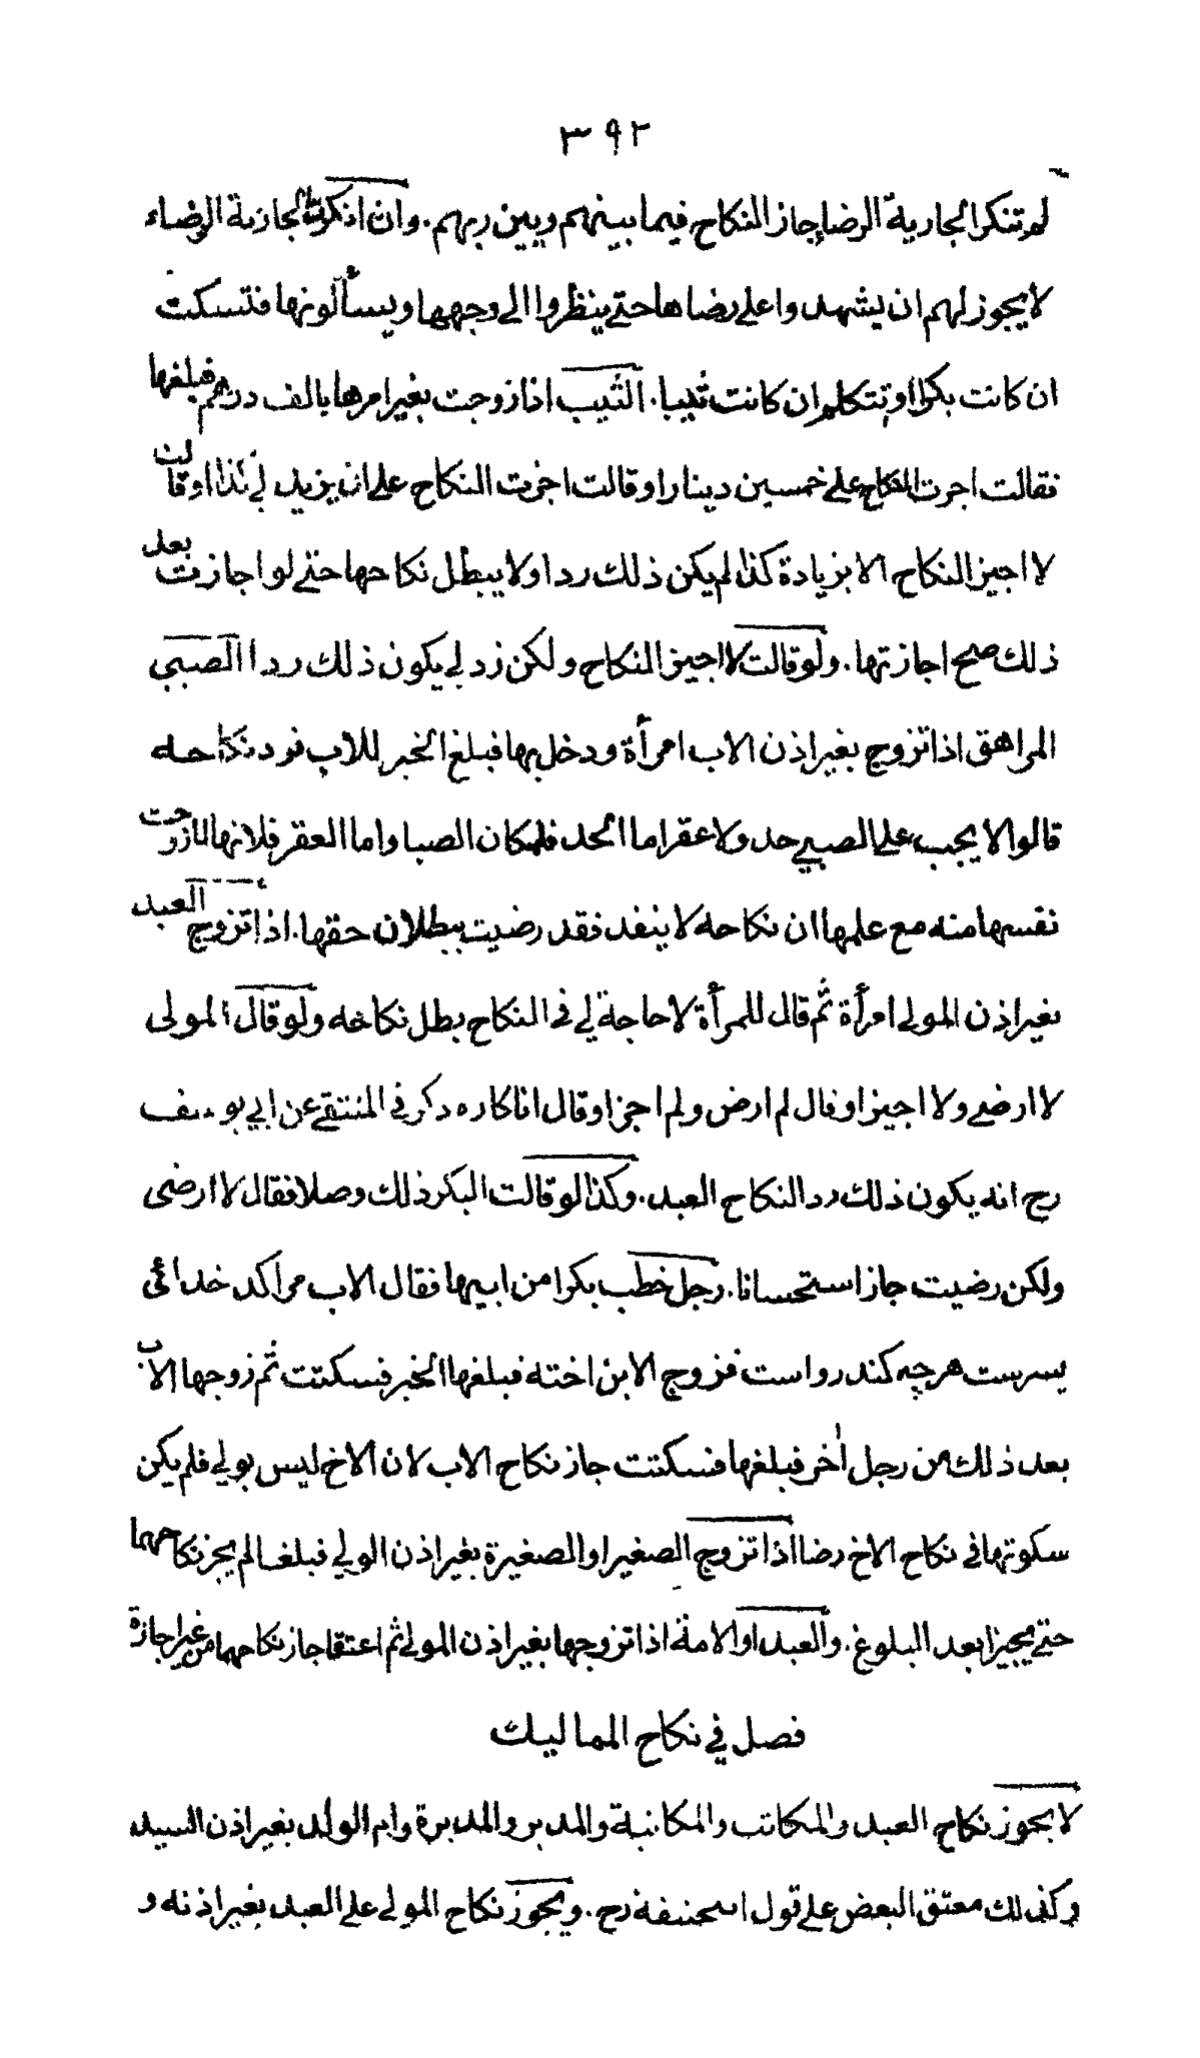 ٣٩٢
لم تنكر الجارية الرضا جاز النكاح فيما بينهم وبين ربهم. وان انكرت الجارية الرضاء
لا يجوز لهم ان يشهدوا على رضاها حتى ينظروا الى وجهها ويسألونها فتسكت
ان كانت بكرا او تتكلم ان كانت ثيبا. الثيب اذا زوجت بغير امرها بالف درهم فبلغها
فقالت اجزت النكاح على خمسين دينارا او قالت اجزت النكاح على ان يزيد لي كذا او قالت
لا اجيز النكاح الا بزيادة كذا لم يكن ذلك ردا ولا يبطل نكاحها حتى لو اجازت بعد
ذلك صح اجازتها. ولو قالت لا اجيز النكاح ولكن زد لي يكون ذلك ردا الصبي
المراهق اذا تزوج بغير اذن الاب امرأة ودخل بها فبلغ الخبر للاب فرد نكاحه
قالوا لا يجب على الصبي حد ولا عقر اما الحد فلمكان الصبا واما العقر فلانها لما زوجت
نفسها منه مع علمها ان نكاحه لا ينفد فقد رضيت ببطلان حقها. اذا تزوج العبد
بغير اذن المولى امرأة ثم قال للمرأة لا حاجة لي في النكاح بطل نكاحه ولو قال المولى
لا ارضى ولا اجيز او قال لم ارض ولم اجز او قال انا كاره ذكر في المنتقى عن ابي يوسف
رح انه يكون ذلك رد النكاح العبد. وكذا لو قالت البكر ذلك وصلا فقال لا ارضى
ولكن رضيت جاز استحسانا. رجل خطب بكرا من ابيها فقال الاب مرا كد خدائى
پسرست هرچه كند رواست فزوج الابن اخته فبلغها الخبر فسكتت ثم زوجها الاب
بعد ذلك من رجل أخر فبلغها فسكتت جاز نكاح الاب لان الاخ ليس بولي فلم يكن
سكوتها في نكاح الاخ رضا اذا تزوج الصغير او الصغيرة بغير اذن الولي فبلغا لم يجز نكاحهما
حتى يجيزا بعد البلوغ. والعبد او الامة اذا تزوجها بغير اذن المولى ثم اعتقا جاز نكاحهما من غير اجازة
فصل في نكاح المماليك
لا يجوز نكاح العبد والمكاتب والمكاتبة والمدبر والمدبرة وام الولد بغير اذن السيد
وكذلك معتق البعض على قول ابيحنيفة رح. ويجوز نكاح المولى على العبد بغير اذنه و